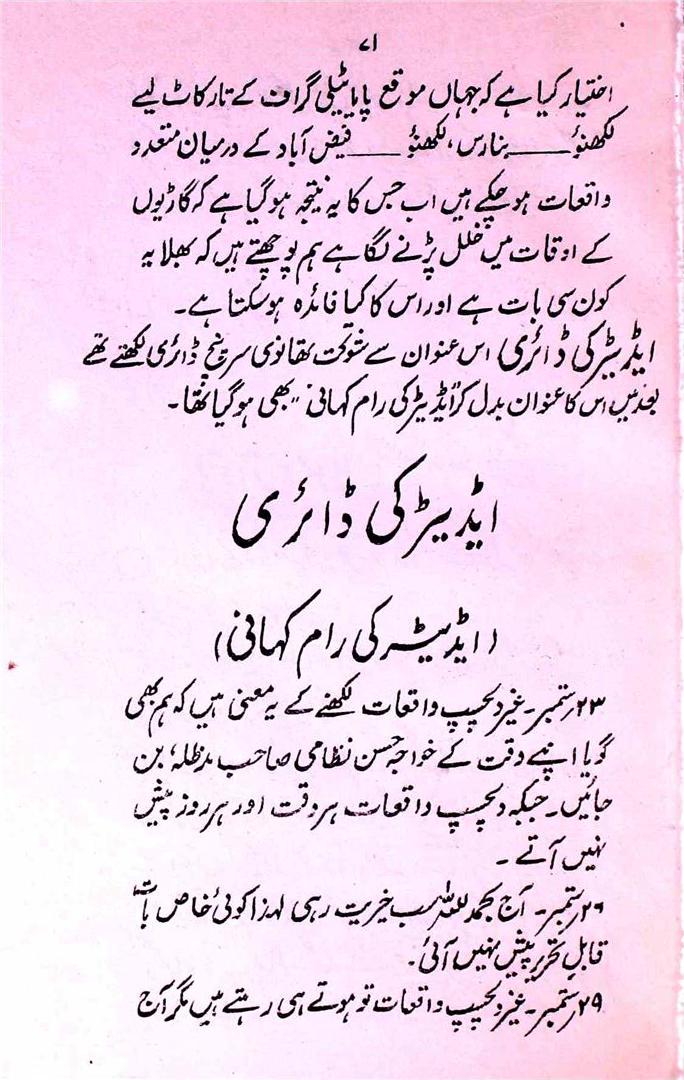 ۷۱
اختیار کیا ہے کہ جہاں موقع پایا ٹیلی گراف کے تار کاٹ لیے
لکھنؤ ــــ بنارس، لکھنؤ ــــ فیض آباد کے درمیان متعدد
واقعات ہو چکے ہیں اب جس کا یہ نتیجہ ہو گیا ہے کہ گاڑیوں
کے اوقات میں خلل پڑنے لگا ہے ہم پوچھتے ہیں کہ بھلا یہ
کون سی بات ہے اور اس کا کیا فائدہ ہو سکتا ہے۔
ایڈیٹر کی ڈائری اس عنوان سے شوکت تھانوی سرپنچ ڈائری لکھتے تھے
بعد میں اس کا عنوان بدل کر "ایڈیٹر کی رام کہانی" بھی ہو گیا تھا۔
ایڈیٹر کی ڈائری
(ایڈیٹر کی رام کہانی)
۲۳ ستمبر۔ غیر دلچسپ واقعات لکھنے کے یہ معنی ہیں کہ ہم بھی
گویا اپنے وقت کے خواجہ حسن نظامی صاحب مدظلہ، بن
جائیں۔ جبکہ دلچسپ واقعات ہر وقت اور ہر روز پیش
نہیں آتے۔
۲۶ ستمبر۔ آج بحمد للہ سب خیریت رہی لہٰذا کوئی خاص بات
قابل تحریر پیش نہیں آئی۔
۲۹ ستمبر۔ غیر دلچسپ واقعات تو ہوتے ہی رہتے ہیں مگر آج